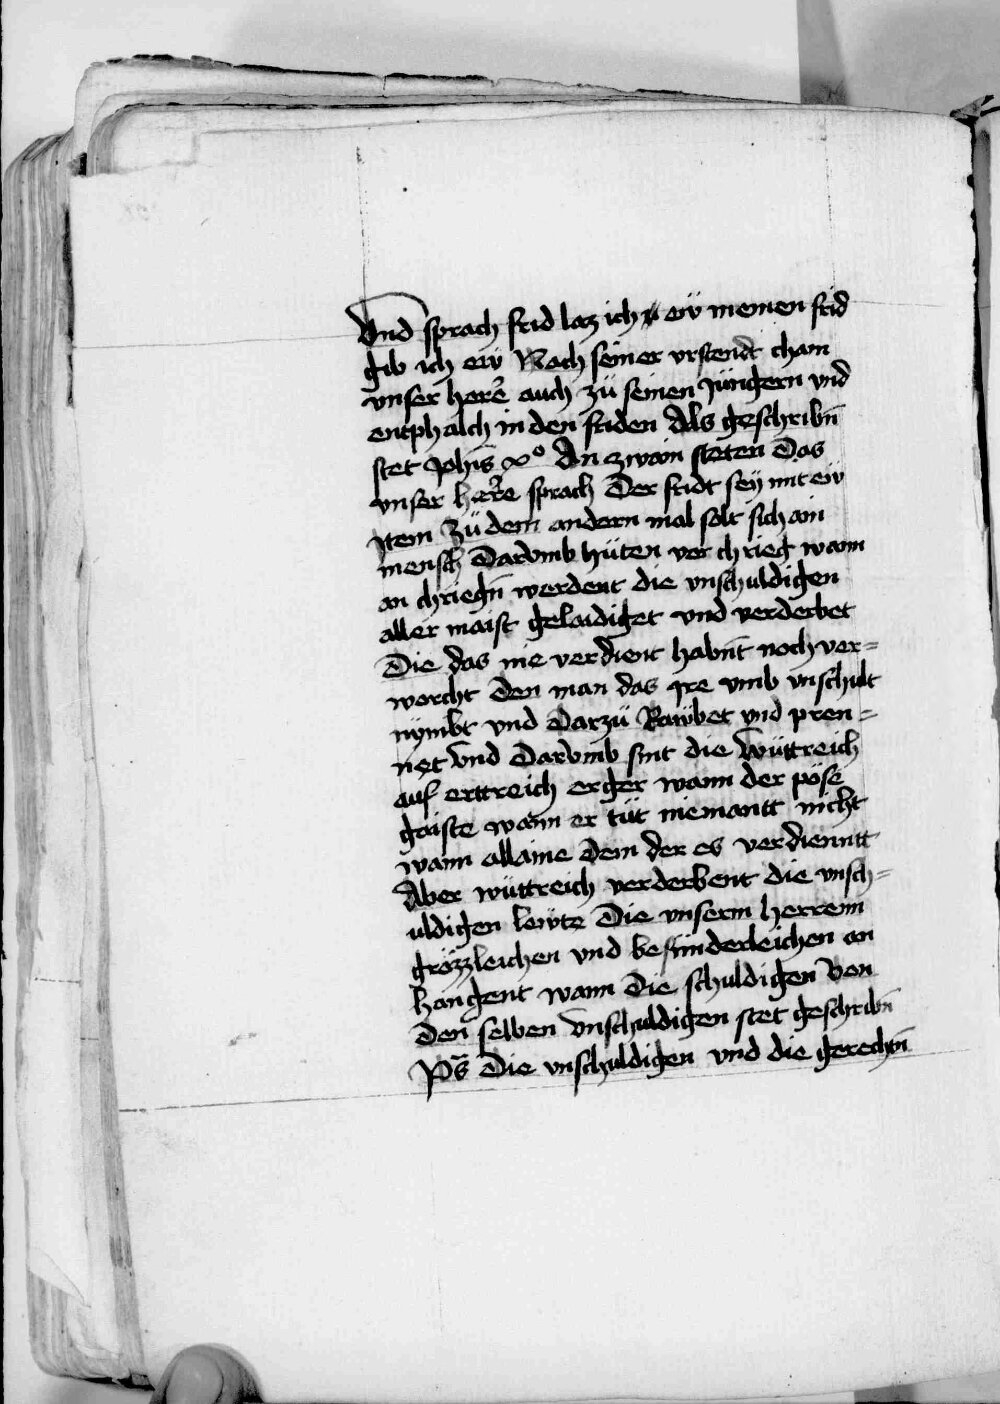 Vnd sprach frid laz ich eẅ meinen frid
gib ich eẅ Nach seiner vrstendt cham
vnser herre auch zü seinen Jüngern vnd
entphalch in den friden Als geschribn̄
stet Joh̄is xx° An zwain steten Das
vnser herre sprach Der fridt sey mit eẅ
Jtem Zü dem andern mal solt sich ain
mensch Darvmb hüten vor chrieg wann
an chriegn̄ werdent die vnschuldigen
aller maist gelaidiget vnd verderbet
Die das nie verdient habn̄t noch ver=
worcht Den man das ire vmb vnschult
nÿmbt vnd Darzü Rawbet vnd pren=
net Vnd Darvmb sint die Wüttreich
auf erttreich erger wann der pöse
gaiste wann er tüt niemantt nicht
wann allaine Dem der es verdienntt
Aber wüttreich verderbent die vnsch=
uldigen leẅte Die vnserm herrenn
grözzleichen vnd besünderleichen an
hangent wann Die schuldigen Von
Den selben Vnschuldigen stet geschribn̄
Ps̄ Die vnschuldigen vnd die gerechn̄